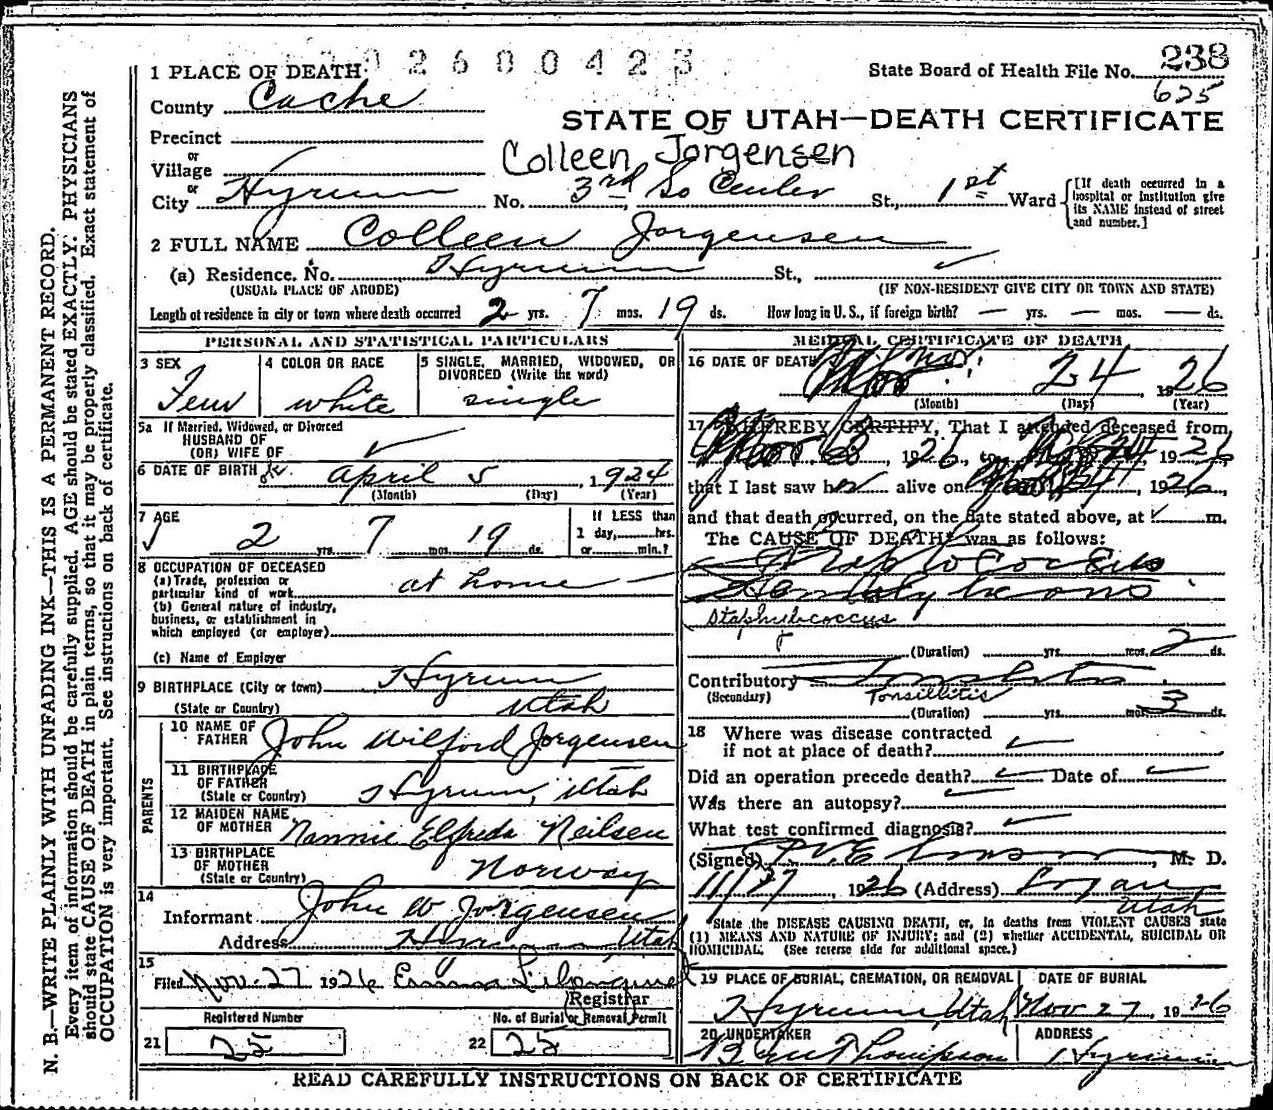 2600425
238
1 PLACE OF DEATH
State Board of Health File No.
625
County Cache
STATE OF UTAH—DEATH CERTIFICATE
Precinct
or
Village
Colleen Jorgensen
or
City Hyrum No. 3rd So Center St., 1st Ward
[If death occurred in a hospital or institution give its NAME instead of street and number.]
2 FULL NAME Colleen Jorgensen
(a) Residence. No. Hyrum St.,
(USUAL PLACE OF ABODE) (IF NON-RESIDENT GIVE CITY OR TOWN AND STATE)
Length of residence in city or town where death occurred 2 yrs. 7 mos. 19 ds. How long in U. S., if foreign birth? — yrs. — mos. — ds.
PERSONAL AND STATISTICAL PARTICULARS
3 SEX Fem
4 COLOR OR RACE white
5 SINGLE, MARRIED, WIDOWED, OR DIVORCED (Write the word) single
5a If Married, Widowed, or Divorced
HUSBAND OF
(OR) WIFE OF
6 DATE OF BIRTH April 5, 1924
(Month) (Day) (Year)
7 AGE 2 yrs. 7 mos. 19 ds.
If LESS than
1 day, hrs.
or min.?
8 OCCUPATION OF DECEASED
(a) Trade, profession or
particular kind of work at home
(b) General nature of industry,
business, or establishment in
which employed (or employer)
(c) Name of Employer
9 BIRTHPLACE (City or town) Hyrum
(State or Country) Utah
PARENTS
10 NAME OF FATHER John Wilford Jorgensen
11 BIRTHPLACE OF FATHER (State or Country) Hyrum, Utah
12 MAIDEN NAME OF MOTHER Nannie Elfreda Neilsen
13 BIRTHPLACE OF MOTHER (State or Country) Norway
14
Informant John W Jorgensen
Address Hyrum Utah
15
Filed Nov. 27 1926 Emma
Registrar
Registered Number No. of Burial or Removal Permit
21 25 22 25
MEDICAL CERTIFICATE OF DEATH
16 DATE OF DEATH Nov. 24 1926
(Month) (Day) (Year)
17 I HEREBY CERTIFY, That I attended deceased from
Nov 23, 1926, to Nov 24, 1926
that I last saw her alive on 24, 1926,
and that death occurred, on the date stated above, at m.
The CAUSE OF DEATH* was as follows:
Staphylococcus
(Duration) yrs. mos. 2 ds.
Contributory Tonsillitis
(Secondary) Tonsillitis
(Duration) yrs. mos. 3 ds.
18 Where was disease contracted
if not at place of death?
Did an operation precede death? Date of
Was there an autopsy?
What test confirmed diagnosis?
(Signed) M. D.
11/27, 1926 (Address) Logan
Utah
*State the DISEASE CAUSING DEATH, or, in deaths from VIOLENT CAUSES state
(1) MEANS AND NATURE OF INJURY; and (2) whether ACCIDENTAL, SUICIDAL OR
HOMICIDAL. (See reverse side for additional space.)
19 PLACE OF BURIAL, CREMATION, OR REMOVAL DATE OF BURIAL
Hyrum, Utah Nov 27, 1926
20 UNDERTAKER ADDRESS
Thompson Hyrum
READ CAREFULLY INSTRUCTIONS ON BACK OF CERTIFICATE
N. B.—WRITE PLAINLY WITH UNFADING INK—THIS IS A PERMANENT RECORD.
Every item of information should be carefully supplied. AGE should be stated EXACTLY. PHYSICIANS
should state CAUSE OF DEATH in plain terms, so that it may be properly classified. Exact statement of
OCCUPATION is very important. See instructions on back of certificate.